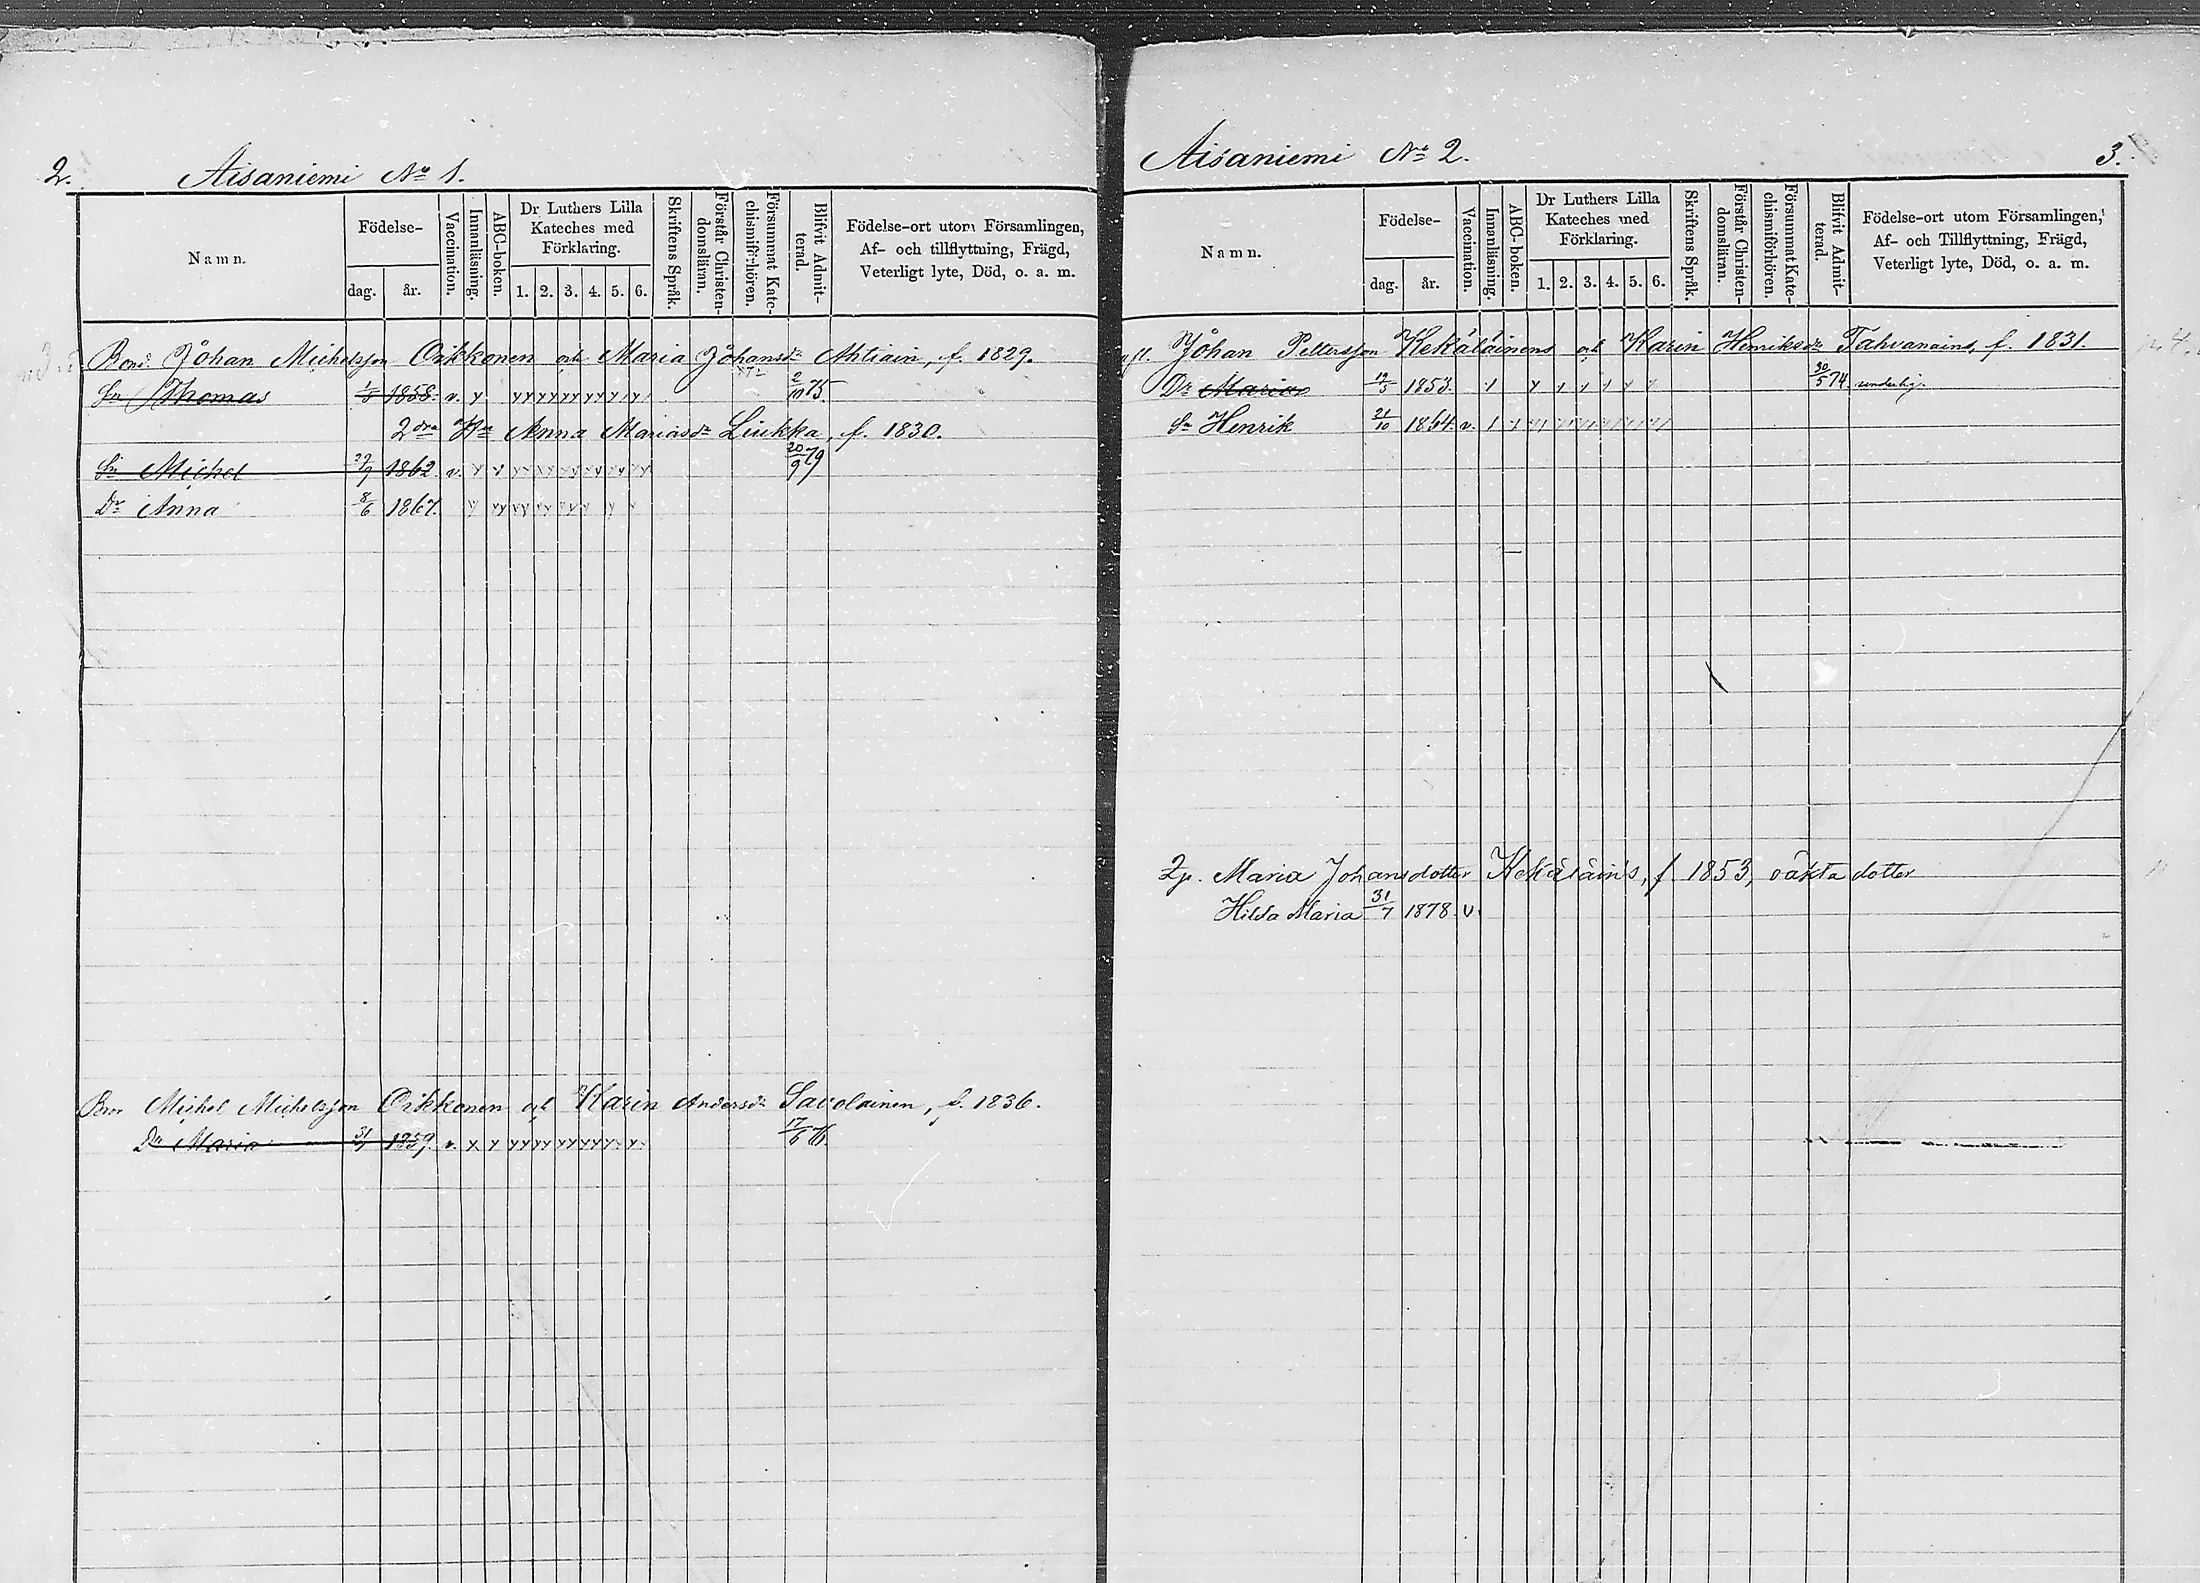 2. Aisaniemi No 1.
Namn.
Födelse-
dag. år.
Vaccination.
Innanläsning.
ABC-boken.
Dr Luthers Lilla
Kateches med
Förklaring.
1. 2. 3. 4. 5. 6.
Skriftens Språk.
Förstår Christen-
domsläran.
Försummat Kate-
chismiförhören.
Blifvit Admit-
terad.
Födelse-ort utom Församlingen,
Af- och tillflyttning, Frägd,
Veterligt lyte, Död, o. a. m.
Bond. Johan Michelsson Oikkonen och Maria Johansdr Ahtiain, f. 1829.
Sn Thomas 1/5 1858. v. 2/10 75.
2dra Hu Anna Mariasdr Liukka, f. 1830.
Sn Michel 27/9 1862 v. 20/9 79
Dr Anna 8/6 1867.
Bror Michel Michelsson Oikkonen och Karin Andersdr Savolainen, f. 1836.
Dr Maria 31/7 1859. v. 17/6 76.
Aisaniemi No 2. 3.
Namn.
Födelse-
dag. år.
Vaccination.
Innanläsning.
ABC-boken.
Dr Luthers Lilla
Kateches med
Förklaring.
1. 2. 3. 4. 5. 6.
Skriftens Språk.
Förstår Christen-
domsläran.
Försummat Kate-
chismiförhören.
Blifvit Admit-
terad.
Födelse-ort utom Församlingen,
Af- och Tillflyttning, Frägd,
Veterligt lyte, Död, o. a. m.
Johan Pettersson Kekäläinens och Karin Henriksdr Tahvanains, f. 1831.
Dr Maria 19/5 1853. 30/5 74.
Sn Henrik 21/10 1864. v.
Maria Johansdotter Kekäläin's, f. 1853, oäkta dotter
Hilda Maria 31/7 1878. v.